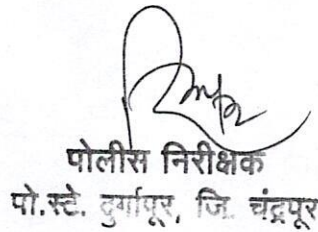 पोलीस निरीक्षक
पो.स्टे. दुर्गापूर, जि. चंद्रपूर